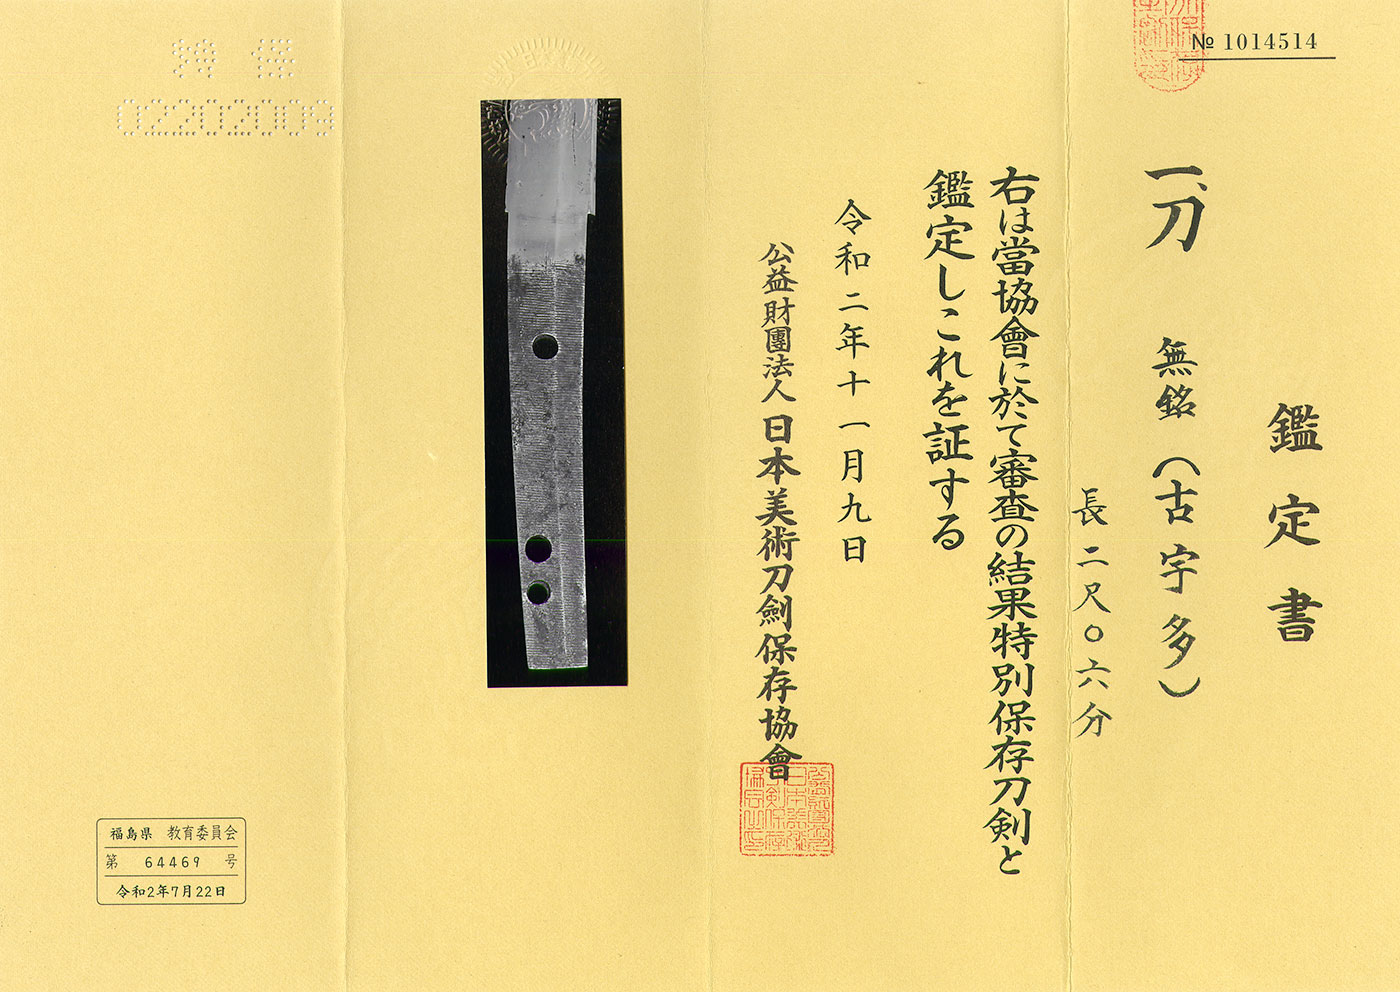 № 1014514
鑑定書
一、刀 無銘(古宇多)
長二尺〇六分
右は當協會に於て審査の結果特別保存刀剣と
鑑定しこれを証する
令和二年十一月九日
公益財團法人 日本美術刀劍保存協會
特保
02202009
福島県 教育委員会
第 64469 号
令和2年7月22日